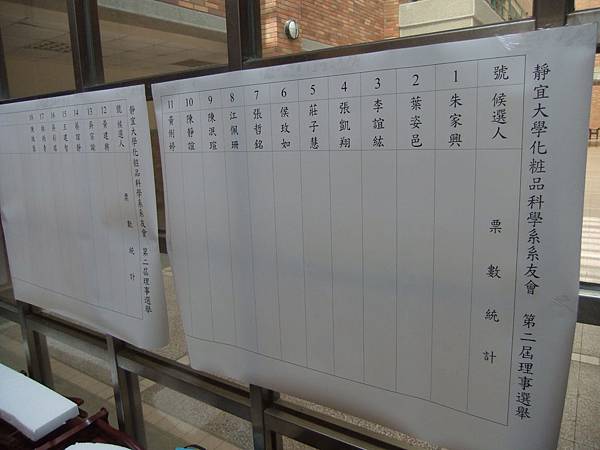 靜宜大學化粧品科學系系友會 第二屆理事選舉
號 候選人 票數統計
1 朱家興
2 葉姿邑
3 李誼紘
4 張凱翔
5 莊子慧
6 侯玫如
7 張哲銘
8 江佩珊
9 陳泯瑄
10 陳靜誼
11 黃俐婷
靜宜大學化粧品科學系系友會 第二屆理事選舉
號 候選人 票數統計
12
13
14
15
16
17
18